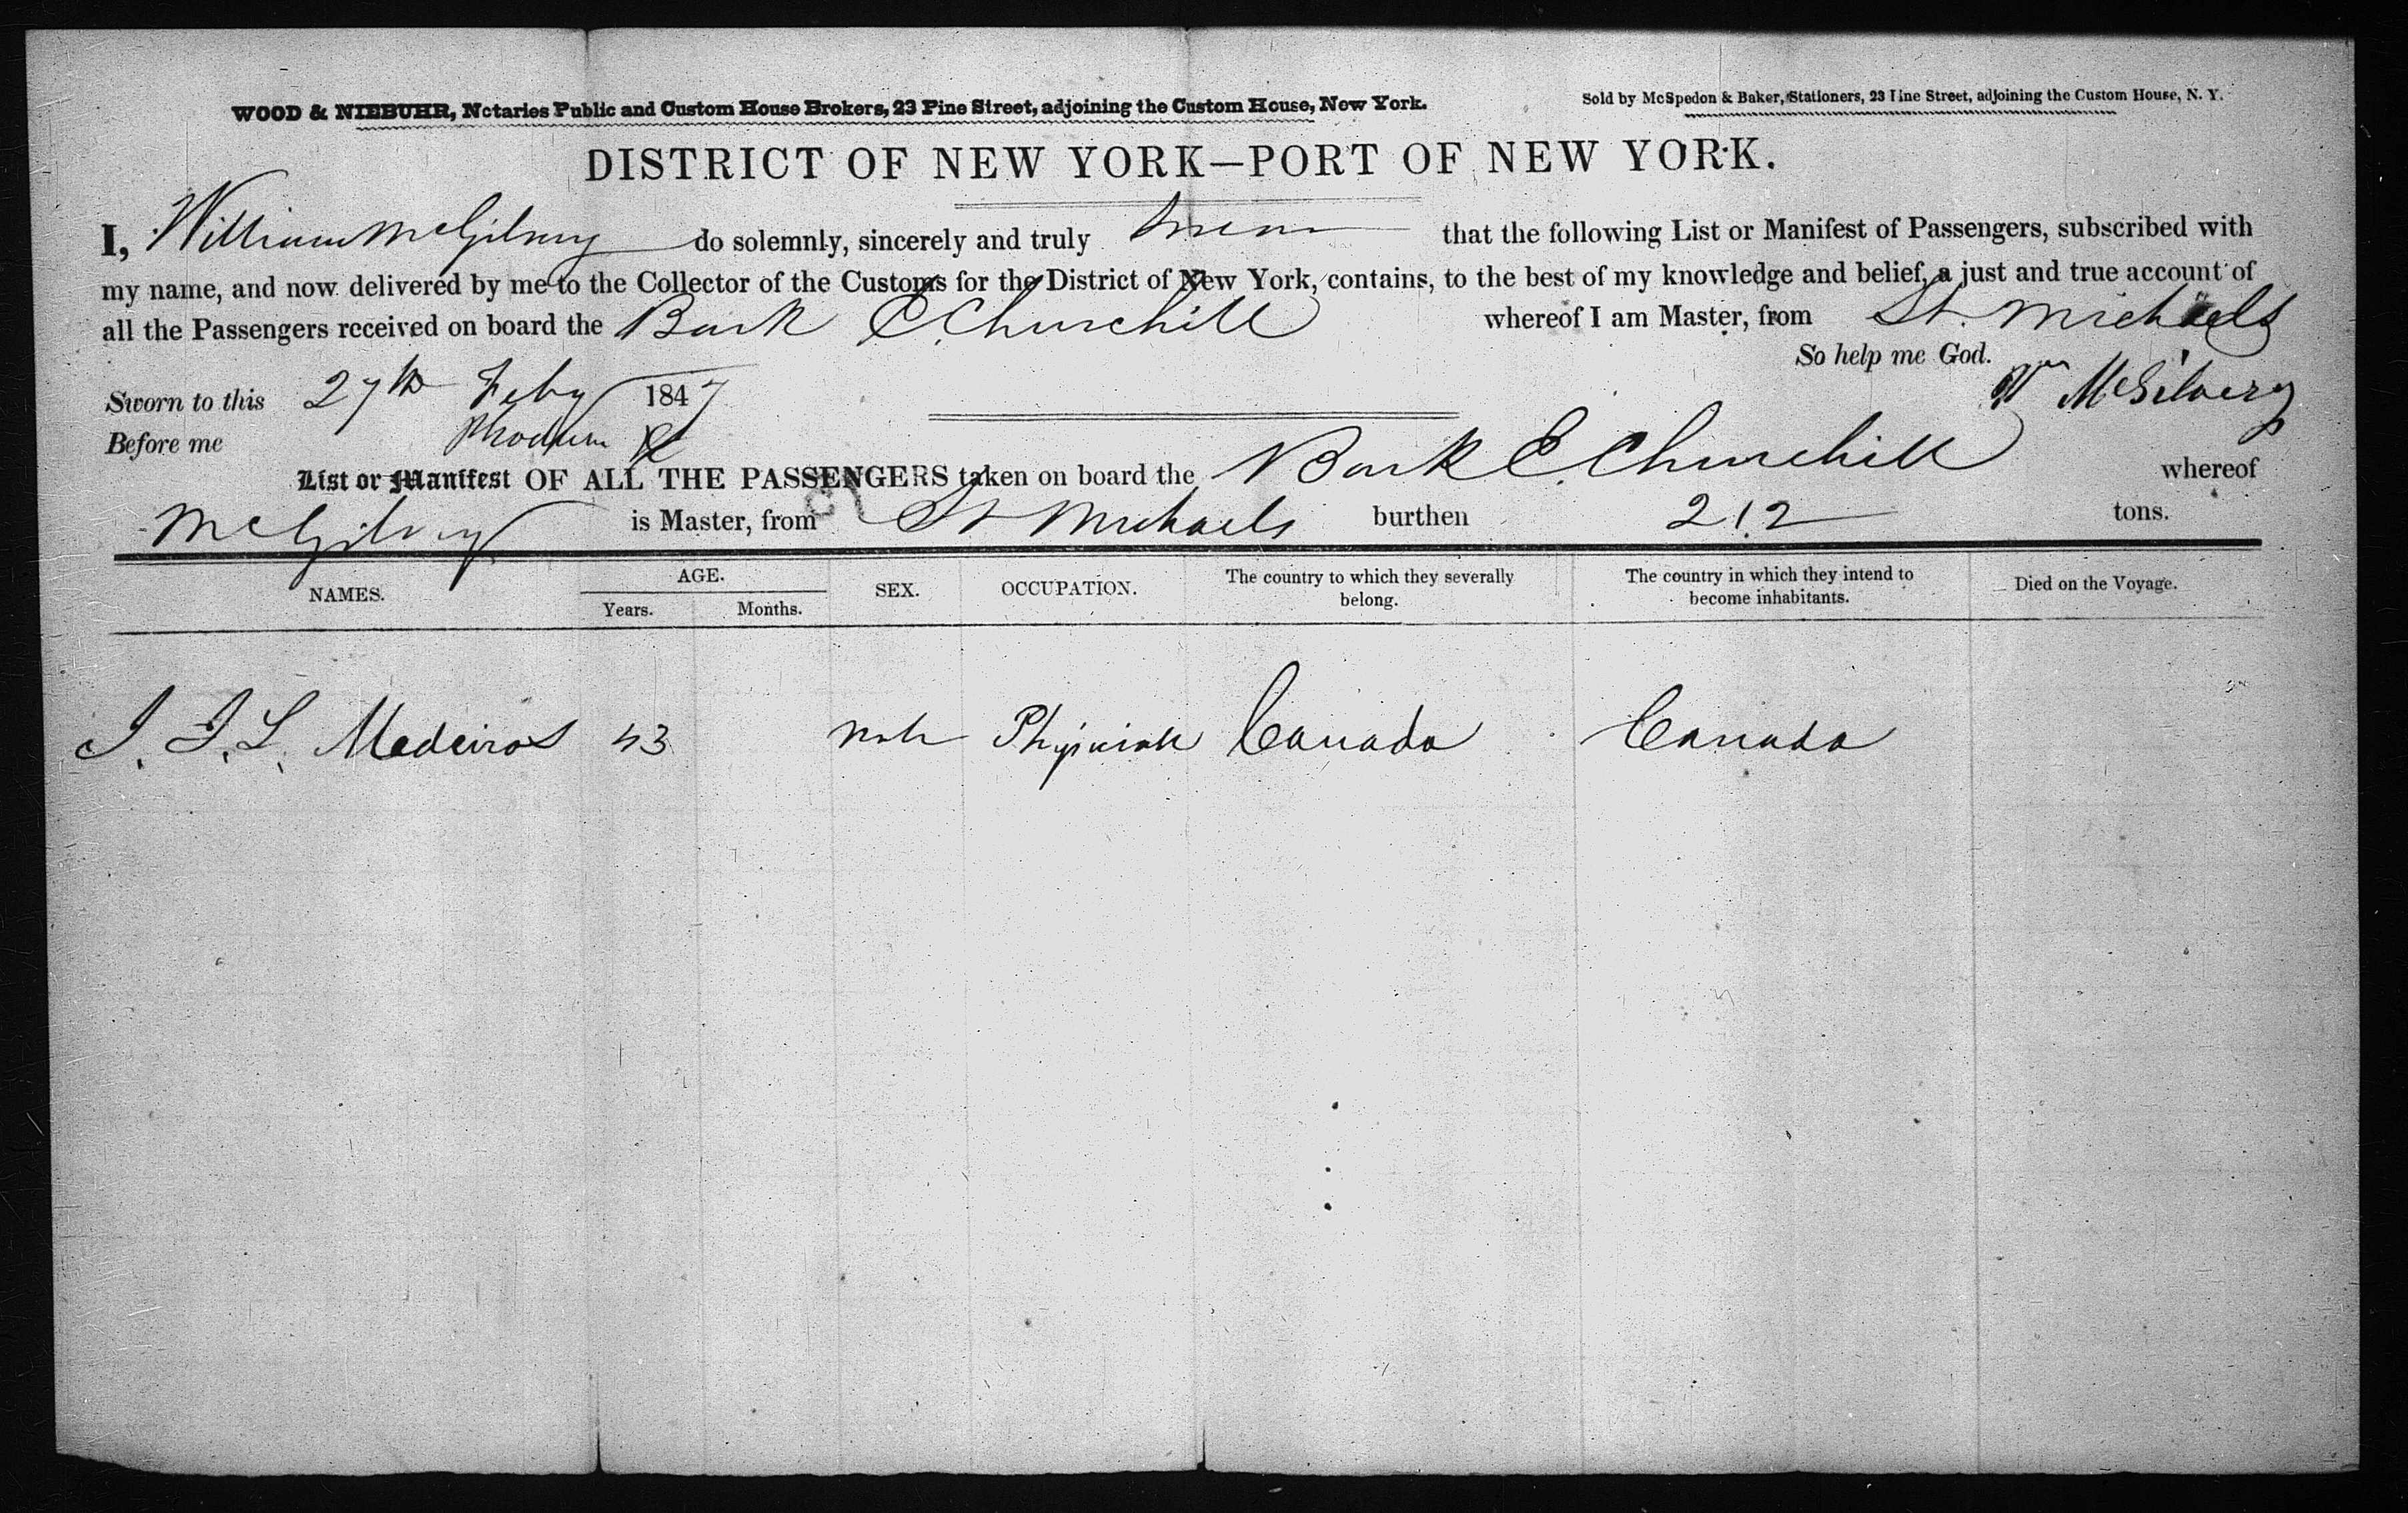 WOOD & NIEBUHR, Notaries Public and Custom House Brokers, 23 Pine Street, adjoining the Custom House, New York.
Sold by McSpedon & Baker, Stationers, 23 Pine Street, adjoining the Custom House, N. Y.
DISTRICT OF NEW YORK—PORT OF NEW YORK.
I, William McGilvery do solemnly, sincerely and truly swear that the following List or Manifest of Passengers, subscribed with
my name, and now delivered by me to the Collector of the Customs for the District of New York, contains, to the best of my knowledge and belief, a just and true account of
all the Passengers received on board the Bark E. Churchill whereof I am Master, from St. Michaels
So help me God.
Sworn to this 27th Feby 1847
Wm McGilvery
Before me
List or Manifest OF ALL THE PASSENGERS taken on board the Bark E. Churchill whereof
McGilvery is Master, from St Michaels burthen 212 tons.
NAMES. AGE. Years. Months. SEX. OCCUPATION. The country to which they severally belong. The country in which they intend to become inhabitants. Died on the Voyage.
J. L. Medeiros 43 male Physician Canada Canada